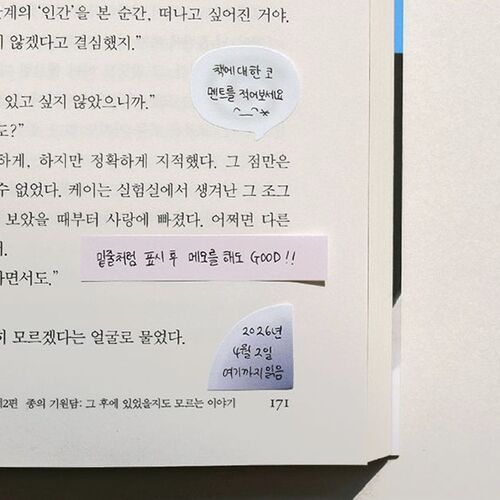 계의 ‘인간’을 본 순간, 떠나고 싶어진 거야.
않겠다고 결심했지.”
책에 대한 코
멘트를 적어보세요
^__^*
있고 싶지 않았으니까.”
도?”
하게, 하지만 정확하게 지적했다. 그 점만은
수 없었다. 케이는 실험실에서 생겨난 그 조그
보았을 때부터 사랑에 빠졌다. 어쩌면 다른
밑줄처럼 표시 후 메모를 해도 GOOD!!
면서도.”
모르겠다는 얼굴로 물었다.
2026년
4월 2일
여기까지 읽음
2편 종의 기원담: 그 후에 있었을지도 모르는 이야기 171